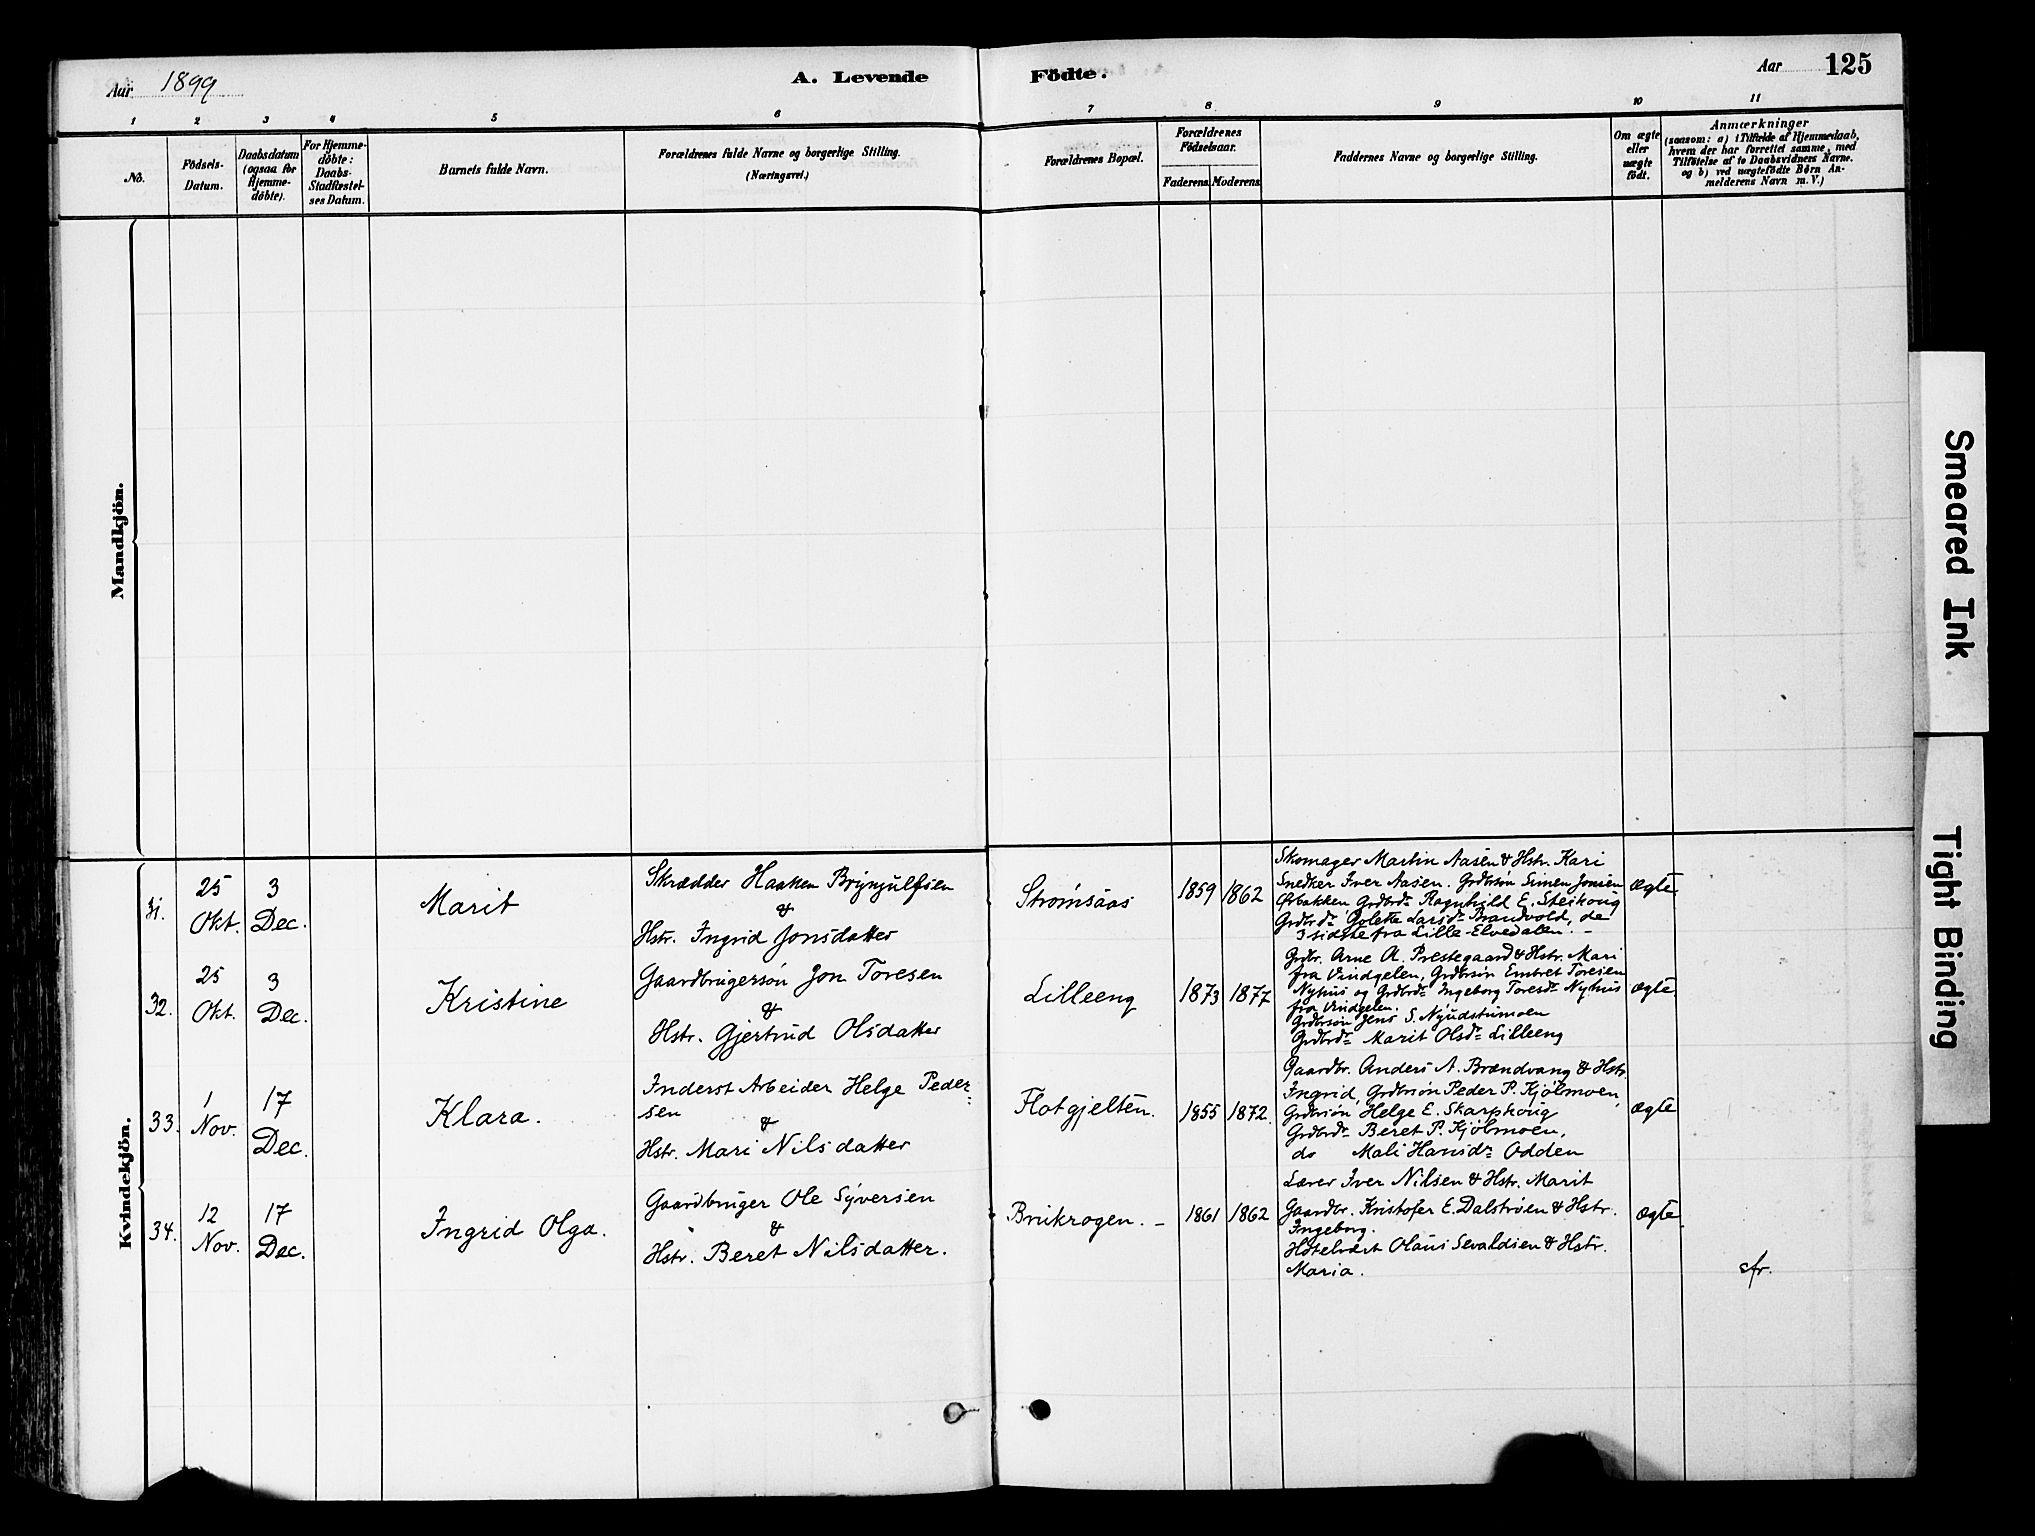 Aar 1899
A. Levende Födte.
Aar 125
1 2 3 4 5 6 7 8 9 10 11
No.
Födsels-
Datum.
Daabsdatum
(ogsaa for
Hjemme-
döbte).
For Hjemme-
döbte:
Daabs-
Stadfæstel-
ses Datum.
Barnets fulde Navn.
Forældrenes fulde Navne og borgerlige Stilling.
(Næringsvei.)
Forældrenes Bopæl.
Forældrenes
Födselsaar.
Faderens. Moderens.
Faddernes Navne og borgerlige Stilling.
Om ægte
eller
uægte
födt.
Anmærkninger
(saasom: a) i Tilfælde af Hjemmedaab,
hvem der har forrettet samme, med
Tilföielse af to Daabsvidners Navne.
og b) ved uægtefödte Börn An-
melderens Navn m. V.)
Mandkjön.
Kvindekjön.
31.
25
Okt.
3
Dec.
Marit
Skrædder Haaken Brynjulfsen
&
Hstr. Ingrid Jonsdatter
Strømsaas
1859 1862
Skomager Martin Aasen & Hstr. Kari
Snedker Iver Aasen. Grdbrsøn Simen Jonsen
Ørbakken Grdbrdr. Ragnhild E. Steihoug
Grdbrdr. Golette Larsdr. Brandvold, de
3 sidste fra Lille-Elvedalen. -
ægte
32.
25
Okt.
3
Dec.
Kristine
Gaardbrugersøn Jon Toresen
&
Hstr. Gjertrud Olsdatter
Lilleeng
1873 1877
Grdbr. Arne A. Prestegaard & Hstr. Mari
fra Vindgelen, Grdbrsøn Embret Toresen
Nyhus og Grdbrdr. Ingeborg Toresdr. Nyhus
fra Vindgelen.
Grdbrsøn Jens S. Nyudstumoen
Grdbrdr. Marit Olsdr. Lilleeng
ægte.
33.
1
Nov.
17
Dec.
Klara.
Inderst Arbeider Helge Peder-
sen
&
Hstr. Mari Nilsdatter
Flotgjelten.
1855 1872.
Gaardbr. Anders A. Brændvang & Hstr.
Ingrid, Grdbrsøn Peder P. Kjølmoen,
Grdbrsøn Helge E. Skarphoug
Grdbrdr. Beret P. Kjølmoen,
do Mali Hansdr. Odden
ægte
34.
12
Nov.
17
Dec.
Ingrid Olga.
Gaardbruger Ole Syversen
&
Hstr. Beret Nilsdatter.
Brukrogen. -
1861 1862
Lærer Iver Nilsen & Hstr. Marit
Gaardbr. Kristofer E. Dalstrøen & Hstr.
Ingeborg.
Hotelvært Olaus Sevaldsen & Hstr.
Maria.
ægte.
cfr.
Smeared Ink
Tight Binding